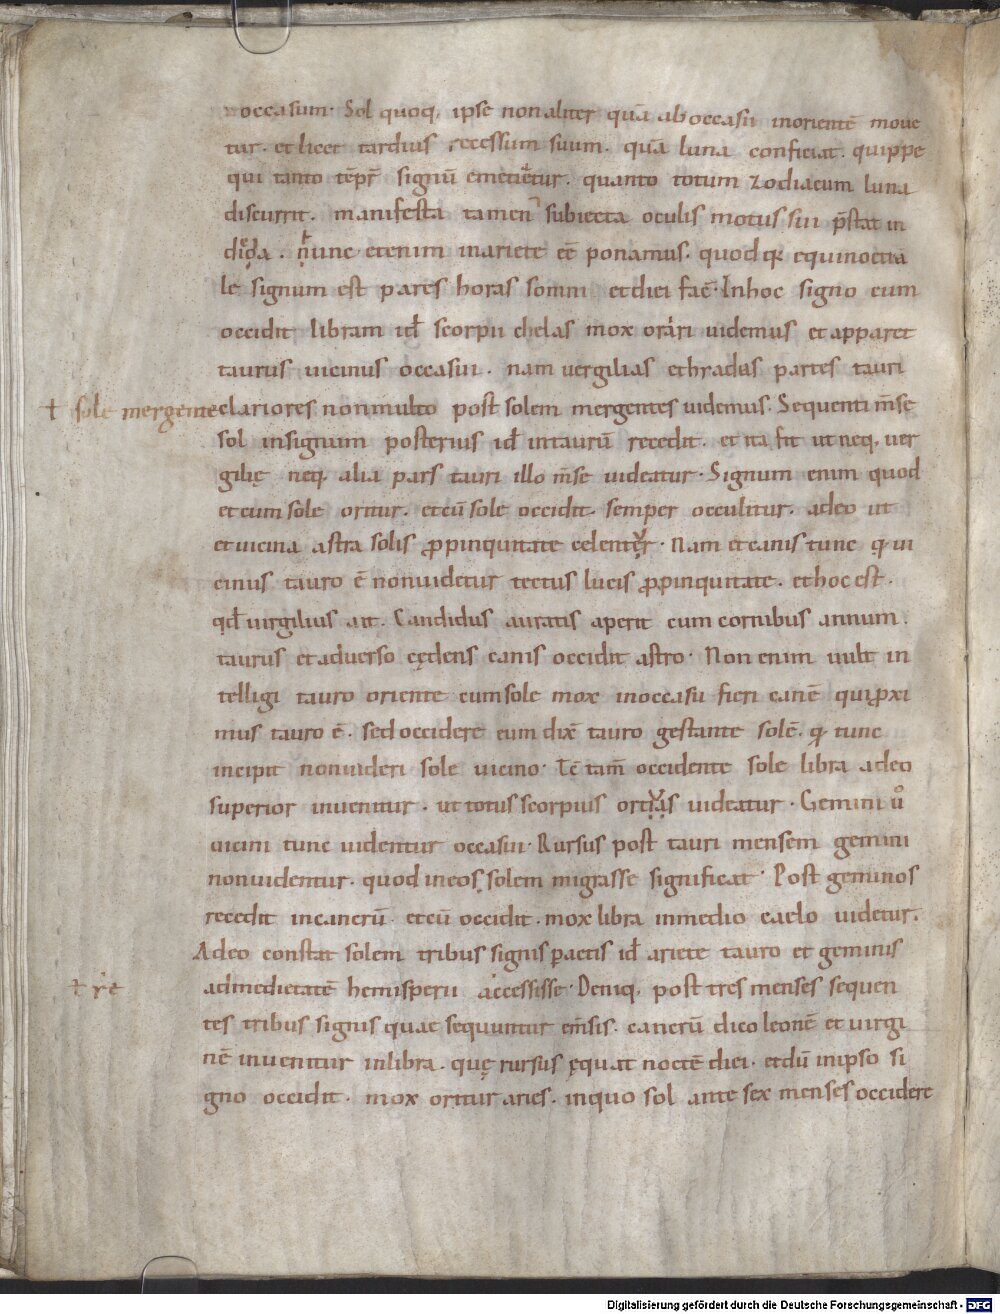 occasum. Sol quoq, ipse non aliter quā ab occasu inorientē moue
tur. et licet tardius recessum suum. quā luna conficiat. quippe
qui tanto tēpr̄ signū emetietur. quanto totum zodiacum luna
discurrit. manifesta tamen subiecta oculis motus sui p̄stat in
dicia. nunc etenim inariete eē ponamus. quod qr equinoctia
le signum est pares horas somni et diei fac̄. Inhoc signo cum
occidit libram id̄ scorpii chelas mox oriri uidemus et apparet
taurus uicinus occasui. nam uergilias et hradas partes tauri
ł sole mergente clariores nonmulto post solem mergentes uidemus. Sequenti m̄se
sol insignum posterius id̄ intaurū recedit. et ita fit ut neq, uer
gilię neq, alia pars tauri illo m̄se uideatur. Signum enim quod
et cum sole oritur. et cū sole occidit. semper occulitur. adeo ut
et uicina astra solis ꝓpinquitate celentur. Nam et canis tunc qr ui
cinus tauro ē nonuidetur tectus lucis ꝓpinquitate. et hoc est.
qd̄ uirgilius ait. Candidus auratis aperit cum cornibus annum.
taurus et aduerso cędens canis occidit astro. Non enim uult in
telligi tauro oriente cum sole mox inoccasu fieri canē qui ꝓxi
mus tauro ē. sed occidere eum dix̄ tauro gestante solē. qr tunc
incipit nonuideri sole uicino. Tc̄ tam̄ occidente sole libra adeo
superior inuenitur. ut totus scorpius ortus uideatur. Gemini ů
uicini tunc uidentur occasui. Rursus post tauri mensem gemini
nonuidentur. quod ineos solem migrasse significat. Post geminos
recedit incancrū. et cū occidit. mox libra inmedio caelo uidetur.
Adeo constat solem tribus signis pactis id̄ ariete tauro et geminis
ł re admedietatē hemisperii accessisse. Deniq, post tres menses sequen
tes tribus signis quae sequuntur em̄sis. cancrū dico leonē et uirgi
nē inuenitur inlibra. quę rursus ęquat noctē diei. et dū inipso si
gno occidit. mox oritur aries. inquo sol ante sex menses occidere
Digitalisierung gefördert durch die Deutsche Forschungsgemeinschaft - DFG